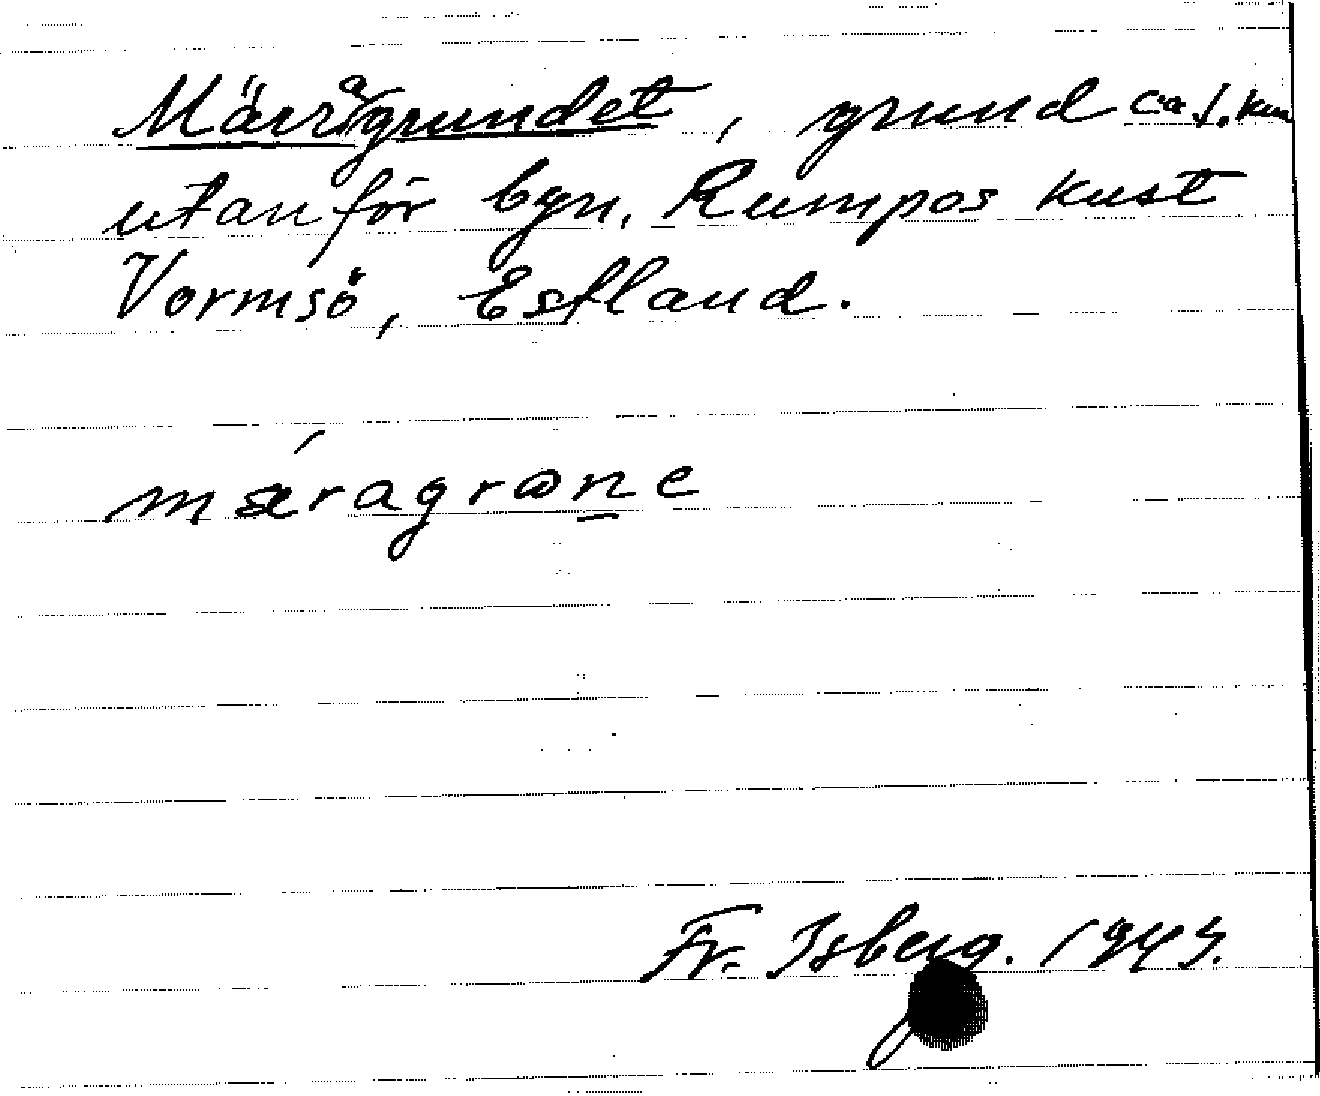 Märragrundet, grund ca 1. km
utanför byn, Rumpos kust
Vormsö, Estland.
mǽragrɷn̲e
Fr. Isberg. 1943.